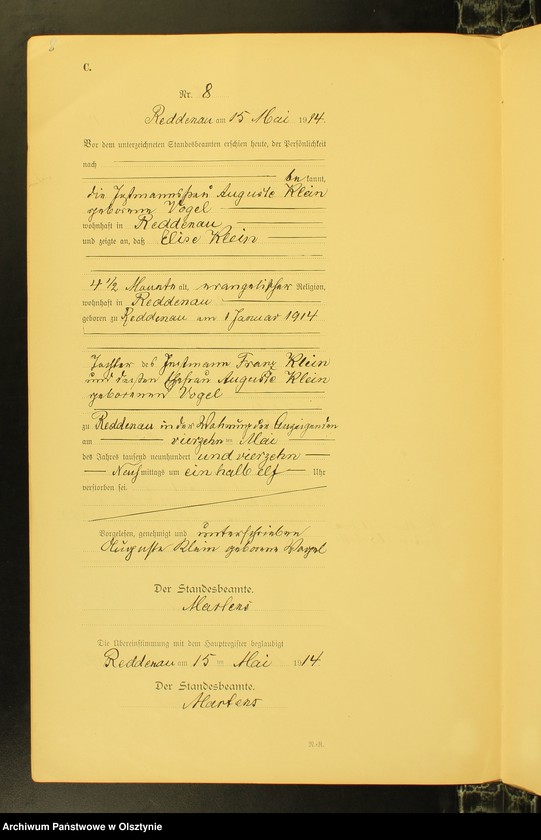 C.
Nr. 8
Reddenau am 15 Mai 1914.
Vor dem unterzeichneten Standesbeamten erschien heute, der Persönlichkeit
nach
bekannt,
die Instmannsfrau Auguste Klein
geborene Vogel
wohnhaft in Reddenau
und zeigte an, daß Elise Klein
4 1/2 Monate alt, evangelischer Religion,
wohnhaft in Reddenau
geboren zu Reddenau am 1 Januar 1914
Tochter des Instmann Franz Klein
und dessen Ehefrau Auguste Klein
geborenen Vogel
zu Reddenau in der Wohnung der Anzeigenden
am vierzehn ten Mai
des Jahres tausend neunhundert und vierzehn
Nachmittags um ein halb elf Uhr
verstorben sei.
Vorgelesen, genehmigt und unterschrieben
Auguste Klein geborene Vogel
Der Standesbeamte.
Martens
Die Übereinstimmung mit dem Hauptregister beglaubigt
Reddenau am 15 ten Mai 1914
Der Standesbeamte.
Martens
Archiwum Państwowe w Olsztynie